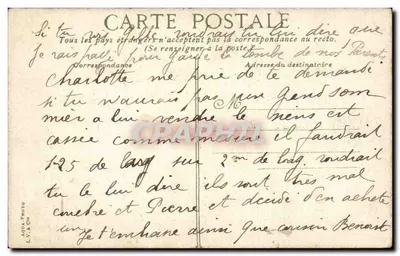 CARTE POSTALE
Si tu vois voudrais tu lui dire que
Tous les pays étrangers n'acceptent pas la correspondance au recto.
(Se renseigner à la poste)
Je rais passé pour garde la tombe de nos Parents
Correspondance
Adresse du destinataire
Charlotte me prie de te demandi
si tu n'aurais pas un grand som
mier a lui vendre le siens est
cassée comme mesure il faudrait
1-25 de larg sur 2m de long. voudrait
tu le lui dire ils sont tres mal
couché et Pierre et décidé d'en acheté
un Je t'embrasse ainsi que cousin Benoist
CPARAMA